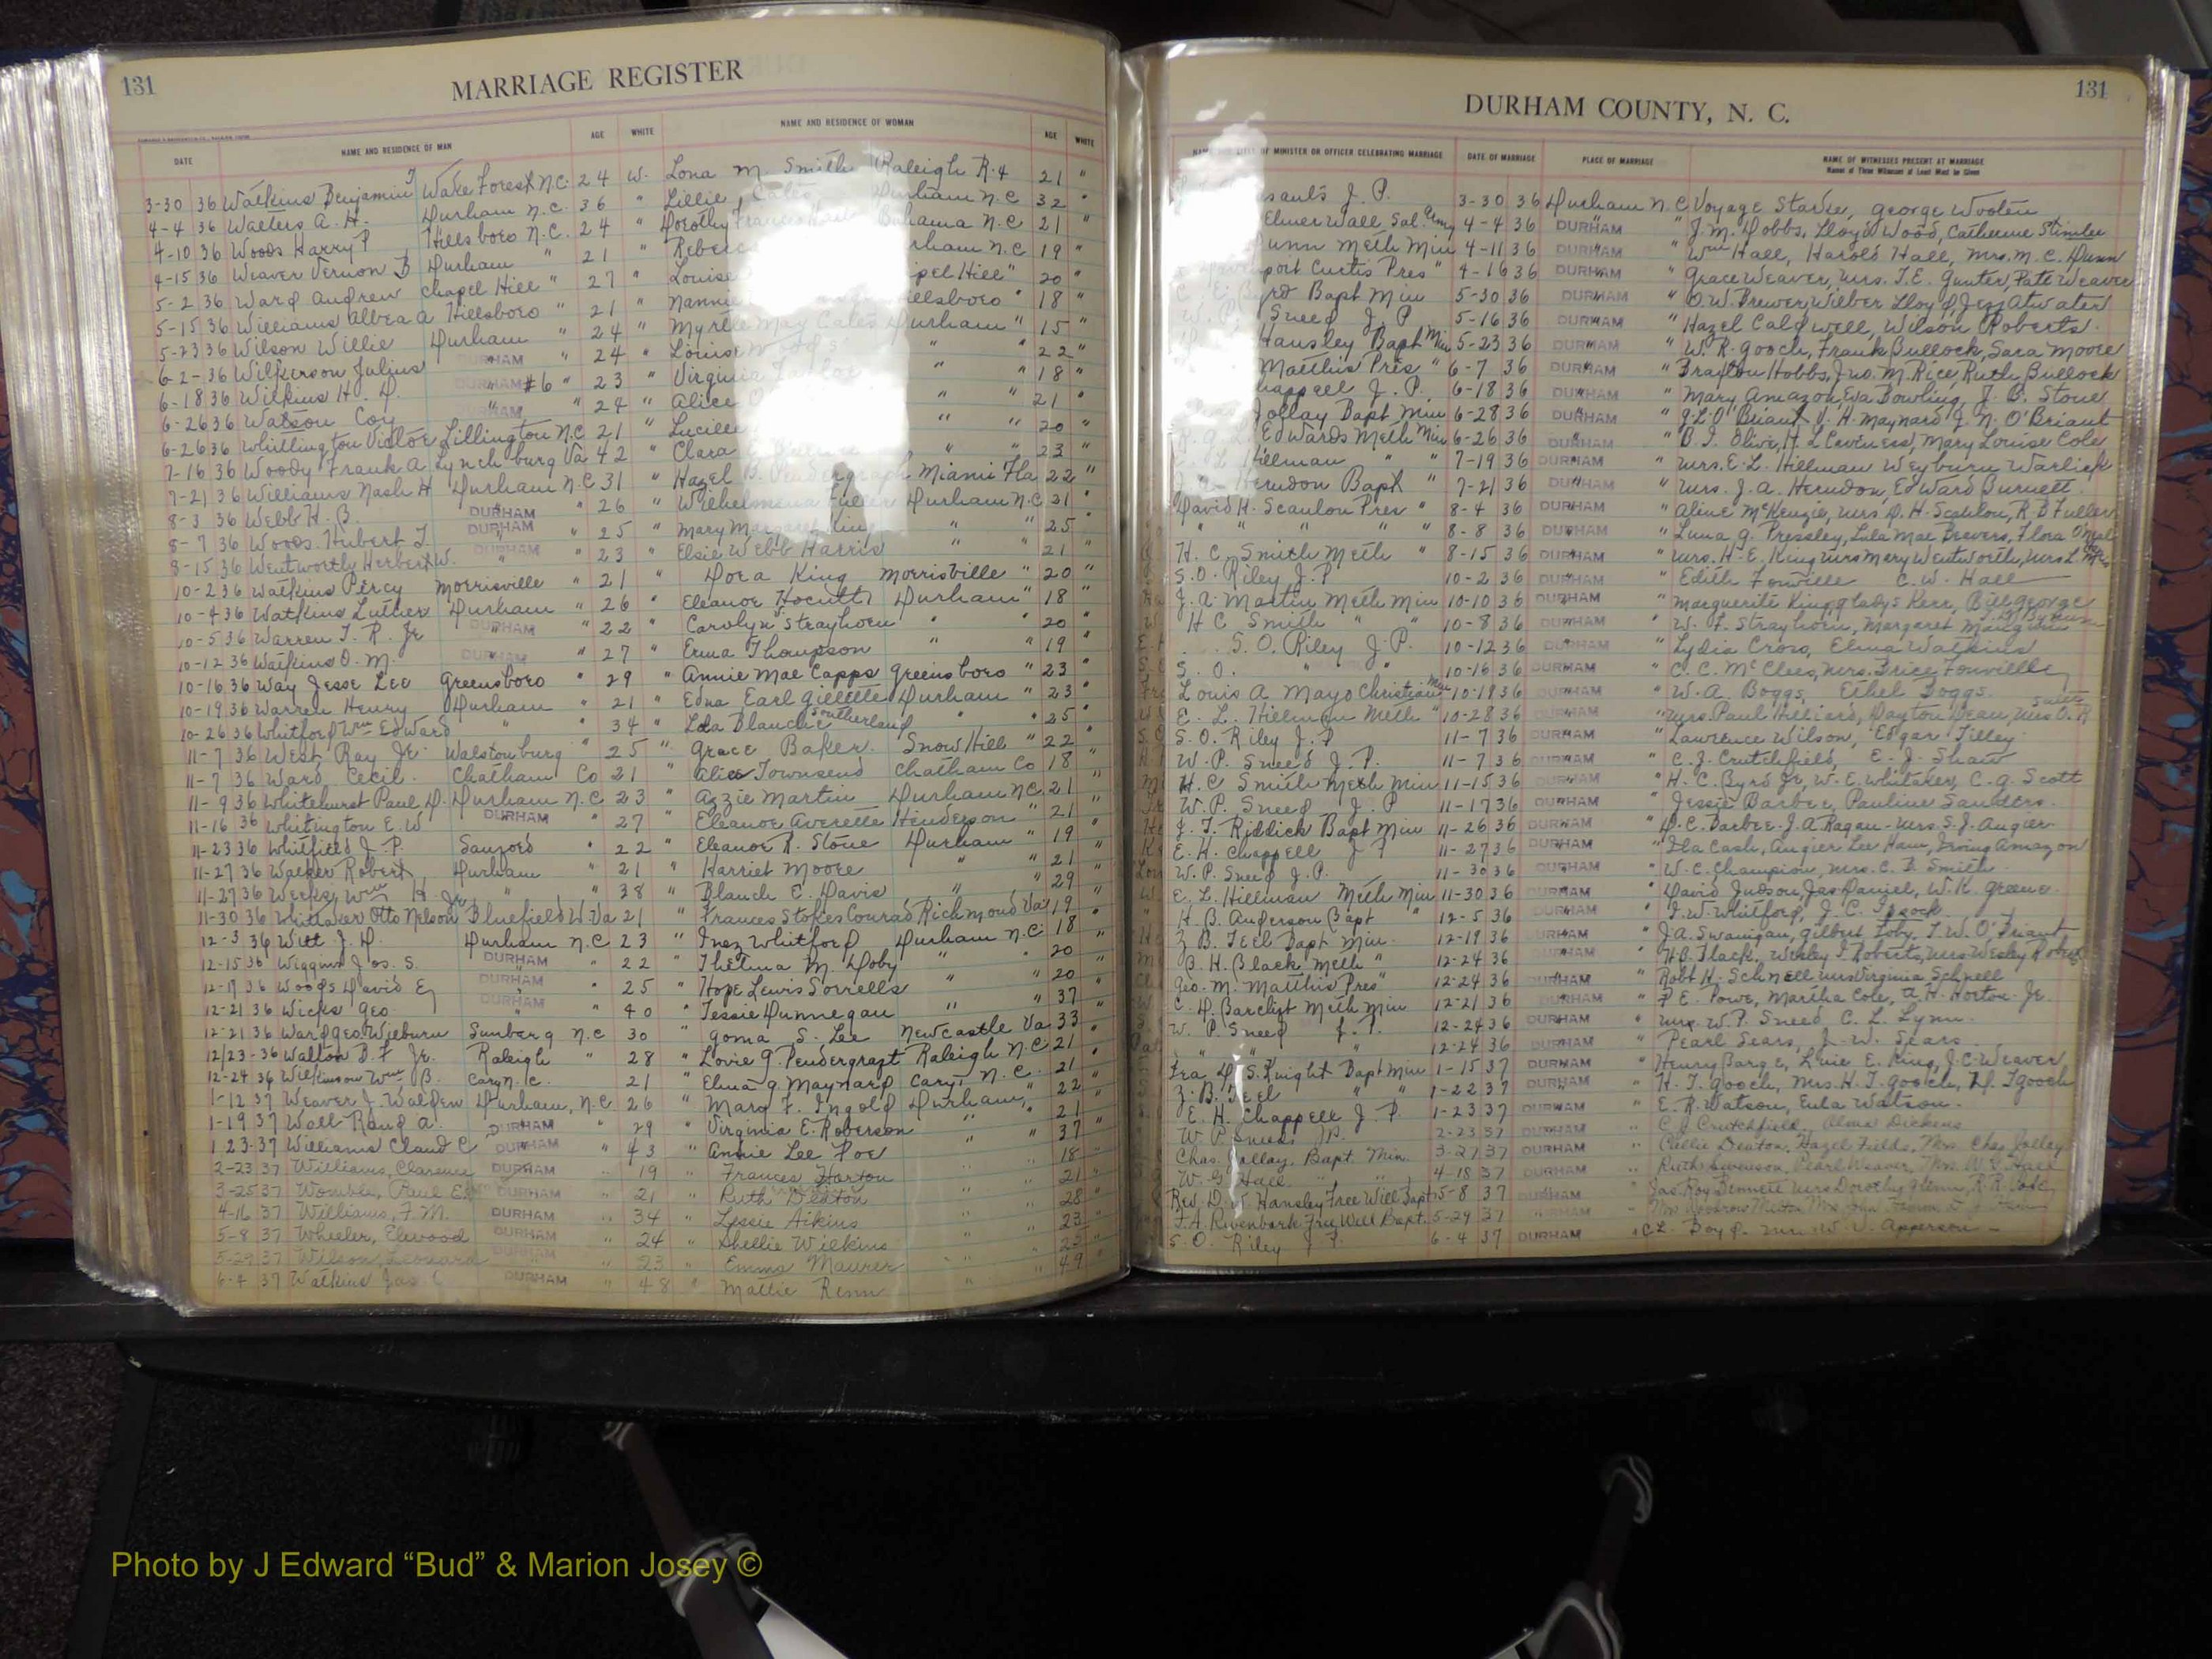 131
MARRIAGE REGISTER
DATE NAME AND RESIDENCE OF MAN AGE WHITE NAME AND RESIDENCE OF WOMAN AGE WHITE
3-30 36 Watkins Benjamin T Wake Forest N.C. 24 W. Lona M. Smith Raleigh R.4 21 "
4-4 36 Walters A. H. Durham N.C. 36 " Lillie Cates Durham N.C 32 "
4-10 36 Woods Harry P Hillsboro N.C. 24 " Dorothy Bahama N.C 21 "
4-15 36 Weaver Vernon B Durham " 21 " N.C 19 "
5-2 36 Ward Andrew Chapel Hill " 27 " Louise Hill " 20 "
5-15 36 Williams Albea A Hillsboro " 21 " Nannie " 18 "
5-23 36 Wilson Willie Durham " 24 " Myrtle May Cates Durham " 15 "
6-2-36 Wilkerson Julius DURHAM " 24 " Louise " " 22 "
6-18 36 Wilkins H. D. DURHAM #6 " 23 " Virginia " " 18 "
6-26 36 Watson Coy DURHAM " 24 " Alice " " 21 "
6-26 36 Whittington Lillington N.C 21 " Lucille " " 20 "
7-16 36 Woody Frank A Lynchburg Va 42 " Clara " " 23 "
7-21 36 Williams Nash H Durham N.C 31 " Hazel B. Pendergraph Miami Fla 22 "
8-3 36 Webb H. B. DURHAM " 26 " Wilhelmena Fuller Durham N.C 31 "
8-7 36 Woods Hubert T DURHAM " 25 " Mary Margaret King " " 25 "
8-15 36 Wentworth Herbert W. DURHAM " 23 " Elsie Webb Harris " " 21 "
10-2 36 Watkins Percy Morrisville " 21 " Dora King Morrisville " 20 "
10-4 36 Watkins Luther Durham " 26 " Eleanor Hocutt Durham " 18 "
10-5 36 Warren T. R. Jr DURHAM " 22 " Carolyn Strayhorn " " 20 "
10-12 36 Watkins O. M. DURHAM " 27 " Erma Thompson " 19 "
10-16 36 Way Jesse Lee Greensboro " 29 " Annie Mae Capps Greensboro " 23 "
10-19 36 Warren Henry Durham " 21 " Edna Earl Gillette Durham " 23 "
10-26 36 Whitford Wm Edward " " 34 " Lola Blanche Southerland " " 25 "
11-7 36 West Ray Jr. Walstonburg " 25 " Grace Baker Snow Hill " 22 "
11-7 36 Ward, Cecil. Chatham Co 21 " Alice Townsend Chatham Co 18 "
11-9 36 Whitehurst Paul D. Durham N.C 23 " Azzie Martin Durham N.C. 21 "
11-16 36 Whitington E. W DURHAM " 27 " Eleanor Averette Henderson " 21 "
11-23 36 Whitfield J. P. Sanford " 22 " Eleanor R. Stone Durham " 19 "
11-27 36 Walker Robert Durham " 21 " Harriet Moore " " 21 "
11-27 36 Weeks, Wm H. Jr " " 38 " Blanch E. Davis " " 29 "
11-30 36 Whittaker Otto Nelson Bluefield W.Va 21 " Frances Stokes Conrad Richmond Va 19 "
12-3 36 Witt J. D. Durham N.C 23 " Inez Whitford Durham N.C. 18 "
12-15 36 Wiggins Jos. S. DURHAM " 22 " Thelma M. Doby " " 20 "
12-17 36 Woods David E DURHAM " 25 " Hope Lewis Sorrells " " 20 "
12-21 36 Wicks Geo. DURHAM " 40 " Tessie Dunnegan " " 37 "
12-21 36 Ward Geo. Wilburn Sunberg N.C 30 " Goma S. Lee Newcastle Va 33 "
12/23-36 Walton B. F Jr. Raleigh " 28 " Lovie G. Pendergraft Raleigh N.C 21 "
12-24 36 Wilkinson Wm B. Cary N.C. 21 " Elma G Maynard Cary, N.C. 21 "
1-12 37 Weaver J. Walden Durham, N.C 26 " Mary F. Ingold Durham, " 22 "
1-19 37 Wall Rand A. DURHAM " 29 " Virginia E. Roberson " " 21 "
1 23-37 Williams Claud C DURHAM " 43 " Annie Lee Poe " " 37 "
2-23 37 Williams, Clarence DURHAM " 19 " Frances Horton " 18 "
3-25 37 Womble, Paul E. DURHAM " 21 " Ruth Deaton " 21 "
4-16 37 Williams, F. M. DURHAM " 34 " Lessie Aikins " 28 "
5-8 37 Wheeler, Elwood DURHAM " 24 " Shellie Wilkins " 23 "
5-29 37 Wilson, Leonard DURHAM " 23 " Emma Maurer " 25 "
6-4 37 Watkins Jas. C DURHAM " 48 " Mattie Renn " 49 "
131
DURHAM COUNTY, N. C.
OF MINISTER OR OFFICER CELEBRATING MARRIAGE DATE OF MARRIAGE PLACE OF MARRIAGE NAME OF WITNESSES PRESENT AT MARRIAGE
Names of Three Witnesses at Least Must be Given
J. P. 3-30 36 Durham N.C Voyage Starke, George Wooten
Elmer Wall Sal. Army 4-4 36 DURHAM " J. M. Dobbs, Lloyd Wood, Catherine
Meth Min 4-11 36 DURHAM " Wm Hall, Harold Hall, Mrs. M. C. Dunn
Curtis Pres " 4-16 36 DURHAM " Grace Weaver, Mrs. T. E. Gunter, Pate Weaver
Byrd Bapt Min 5-30 36 DURHAM " O. W. Brewer, Wilber Lloyd, Jess Atwater
W. P. Sneed J. P 5-16 36 DURHAM " Hazel Caldwell, Wilson Roberts.
Hansley Bapt Min 5-23 36 DURHAM " W. R. Gooch, Frank Bullock, Sara Moore
Matthis Pres " 6-7 36 DURHAM " Brayton Hobbs, Jno. M. Rice, Ruth Bullock
J. P. 6-18 36 DURHAM " Mary Amazon, Eva Dowling, J. B. Stone
Jollay Bapt Min 6-28 36 DURHAM " G. L. O'Briant J. H. Maynard J. N. O'Briant
Edwards Meth Min 6-26 36 DURHAM " B. T. Olive, Mary Louise Cole
Hillman " " 7-19 36 DURHAM " Mrs. E. L. Hillman Weyburn Warlick
Herndon Bapt " 7-21 36 DURHAM " Mrs. J. A. Herndon, Edward Burnett.
David H. Scanlon Pres " 8-4 36 DURHAM " Aline McKenzie, Mrs D. H. Scanlon, R. B Fuller
" " " " 8-8 36 DURHAM " Luna G. Pressley, Lula Mae Brevers, Flora
H. C. Smith Meth " 8-15 36 DURHAM " Mrs. H. E. King Mrs Mary Wentworth, Mrs L.
S. O. Riley J. P 10-2 36 DURHAM " Edith Fonville C. W. Hall
J. A. Martin Meth Min 10-10 36 DURHAM " Marguerite King, Gladys Kerr, Bill George
H C Smith " " 10-8 36 DURHAM " W. F. Strayhorn, Margaret
S. O. Riley J. P. 10-12 36 DURHAM " Lydia Cross, Elma Watkins
S. O. " " 10-16 36 DURHAM " C. C. McClees, Mrs. Brice Fonville
Louis A Mayo Christian Min 10-18 36 DURHAM " W. A. Boggs, Ethel Boggs.
E. L. Hillman Meth " 10-28 36 DURHAM " Mrs. Paul Hilliard, Dayton Dean, Mrs O. R.
S. O. Riley J. P 11-7 36 DURHAM " Lawrence Wilson, Edgar Tilley
W. P. Sneed J. P. 11-7 36 DURHAM " C. J. Crutchfield, E. J. Shaw
H. C Smith Meth Min 11-15 36 DURHAM " H. C. Byrd Jr, W. E. Whitaker, C. G. Scott
W. P. Sneed J. P 11-17 36 DURHAM " Jessie Barbee, Pauline Saunders.
J. T. Riddick Bapt Min 11-26 36 DURHAM " D. C. Barbee. J. A Ragan-Mrs. S. J. Angier
E. H. Chappell J P 11-27 36 DURHAM " Ila Cash, Angier Lee Ham, Irving Amazon
W. P. Sneed J. P. 11-30 36 DURHAM " W. C. Champion, Mrs. C. B Smith
E. L. Hillman Meth Min 11-30 36 DURHAM " David Judson, Jas Daniel, W. K. Greene
H. B. Anderson Bapt " 12-5 36 DURHAM " F. W. Whitford, J. C. Isook
Z B. Teel Bapt Min. 12-19 36 DURHAM " J. A. Swanigan, Gilbert Toby, T. W. O'Briant
B. H. Black Meth " 12-24 36 DURHAM " H. B. Black, Wesley T Roberts, Mrs Wesley Roberts
Geo. M. Matthis Pres " 12-24 36 DURHAM " Robt H. Schnell Mrs Virginia Schnell
C. D. Barclift Meth Min 12-21 36 DURHAM " P E. Powe, Martha Cole, A. H. Horton Jr.
W. P. Sneed J. P. 12-24 36 DURHAM " Mrs. W. P. Sneed C. L. Lynn.
" " " 12-24 36 DURHAM " Pearl Sears, J. W. Sears
Ira D. S. Knight Bapt Min 1-15 37 DURHAM " Henry Barge, E. King, J. C. Weaver
Z. B. Teel " " 1-22 37 DURHAM " H. T. Gooch, Mrs. H. T. Gooch, D. T Gooch
E. H. Chappell J. P. 1-23 37 DURHAM " E. R. Watson, Eula Watson.
W P Sneed JP. 2-23 37 DURHAM " C J Crutchfield, Alma Dickens
Chas. Jollay, Bapt. Min. 3-27 37 DURHAM " Callie Deaton, Hazel Fields, Mrs Chas Jollay
W. G Hall " " 4-18 37 DURHAM " Ruth Swenson, Pearl Weaver, Mrs. W. G. Hall
Rev. D. W. Hansley Free Will Bapt 5-8 37 DURHAM " Jas. Roy Bennett Mrs Dorothy Glenn, R. R.
J. A. Rivenbark Free Will Bapt. 5-29 37 DURHAM " Mrs Woodrow
S. O. Riley J. P. 6-4 37 DURHAM " C. L. Boyd. Mrs. W. V. Apperson
Photo by J Edward “Bud” & Marion Josey ©